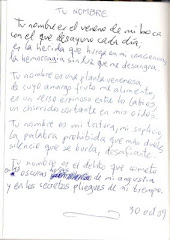 TU NOMBRE
Tu nombre es el veneno de mi boca
con el que desayuno cada día,
es la herida que hurga en mi conciencia,
la hemorragia sin fin que me desangra.
Tu nombre es una planta venenosa,
de cuyo amargo fruto me alimento,
es un verso espinoso entre los labios,
un chirrido constante en mis oídos.
Tu nombre es mi tortura, mi suplicio,
la palabra prohibida que más duele,
silencio que se burla, desafiante.
Tu nombre es el delito que cometo
a oscuras de mi angustia
y en los secretos pliegues de mi tiempo.
30 oct 09